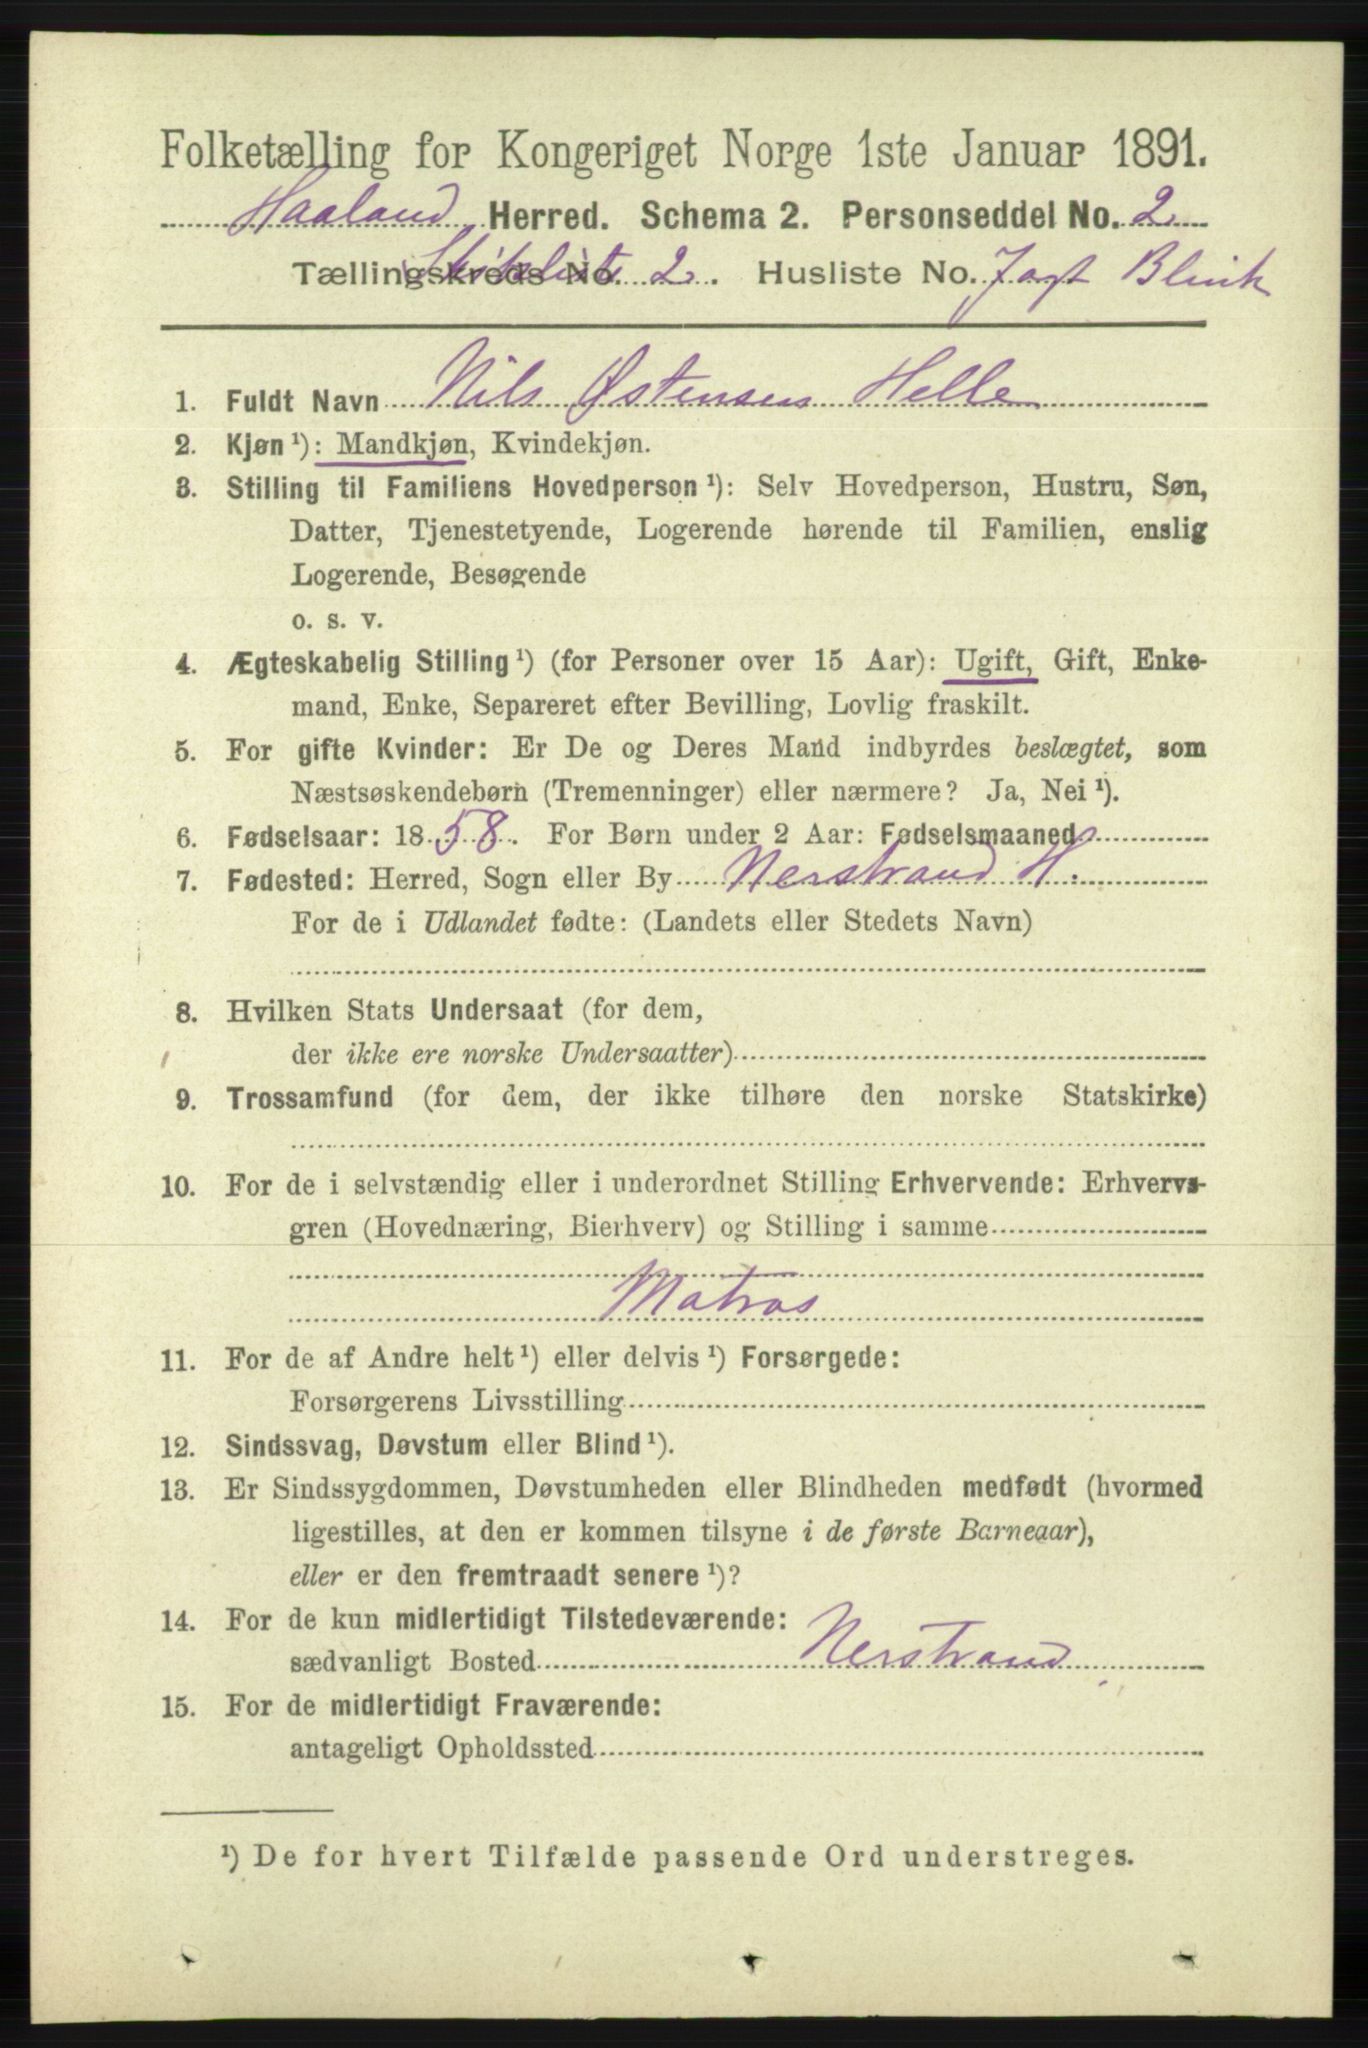 Folketælling for Kongeriget Norge 1ste Januar 1891.
Haaland Herred. Schema 2. Personseddel No. 2
Tællingskreds No. Skibsliste 2. Husliste No. Jagt Blink
1. Fuldt Navn Nils Østensen Helle
2. Kjøn ¹): Mandkjøn, Kvindekjøn.
3. Stilling til Familiens Hovedperson ¹): Selv Hovedperson, Hustru, Søn,
Datter, Tjenestetyende, Logerende hørende til Familien, enslig
Logerende, Besøgende
o. s. v.
4. Ægteskabelig Stilling ¹) (for Personer over 15 Aar): Ugift, Gift, Enke-
mand, Enke, Separeret efter Bevilling, Lovlig fraskilt.
5. For gifte Kvinder: Er De og Deres Mand indbyrdes beslægtet, som
Næstsøskendebørn (Tremenninger) eller nærmere? Ja, Nei ¹).
6. Fødselsaar: 1858. For Børn under 2 Aar: Fødselsmaaned
7. Fødested: Herred, Sogn eller By Nerstrand H.
For de i Udlandet fødte: (Landets eller Stedets Navn)
8. Hvilken Stats Undersaat (for dem,
der ikke ere norske Undersaatter)
9. Trossamfund (for dem, der ikke tilhøre den norske Statskirke)
10. For de i selvstændig eller i underordnet Stilling Erhvervende: Erhvervs-
gren (Hovednæring, Bierhverv) og Stilling i samme
Matros
11. For de af Andre helt ¹) eller delvis ¹) Forsørgede:
Forsørgerens Livsstilling
12. Sindssvag, Døvstum eller Blind ¹).
13. Er Sindssygdommen, Døvstumheden eller Blindheden medfødt (hvormed
ligestilles, at den er kommen tilsyne i de første Barneaar),
eller er den fremtraadt senere ¹)?
14. For de kun midlertidigt Tilstedeværende:
sædvanligt Bosted Nerstrand
15. For de midlertidigt Fraværende:
antageligt Opholdssted
¹) De for hvert Tilfælde passende Ord understreges.